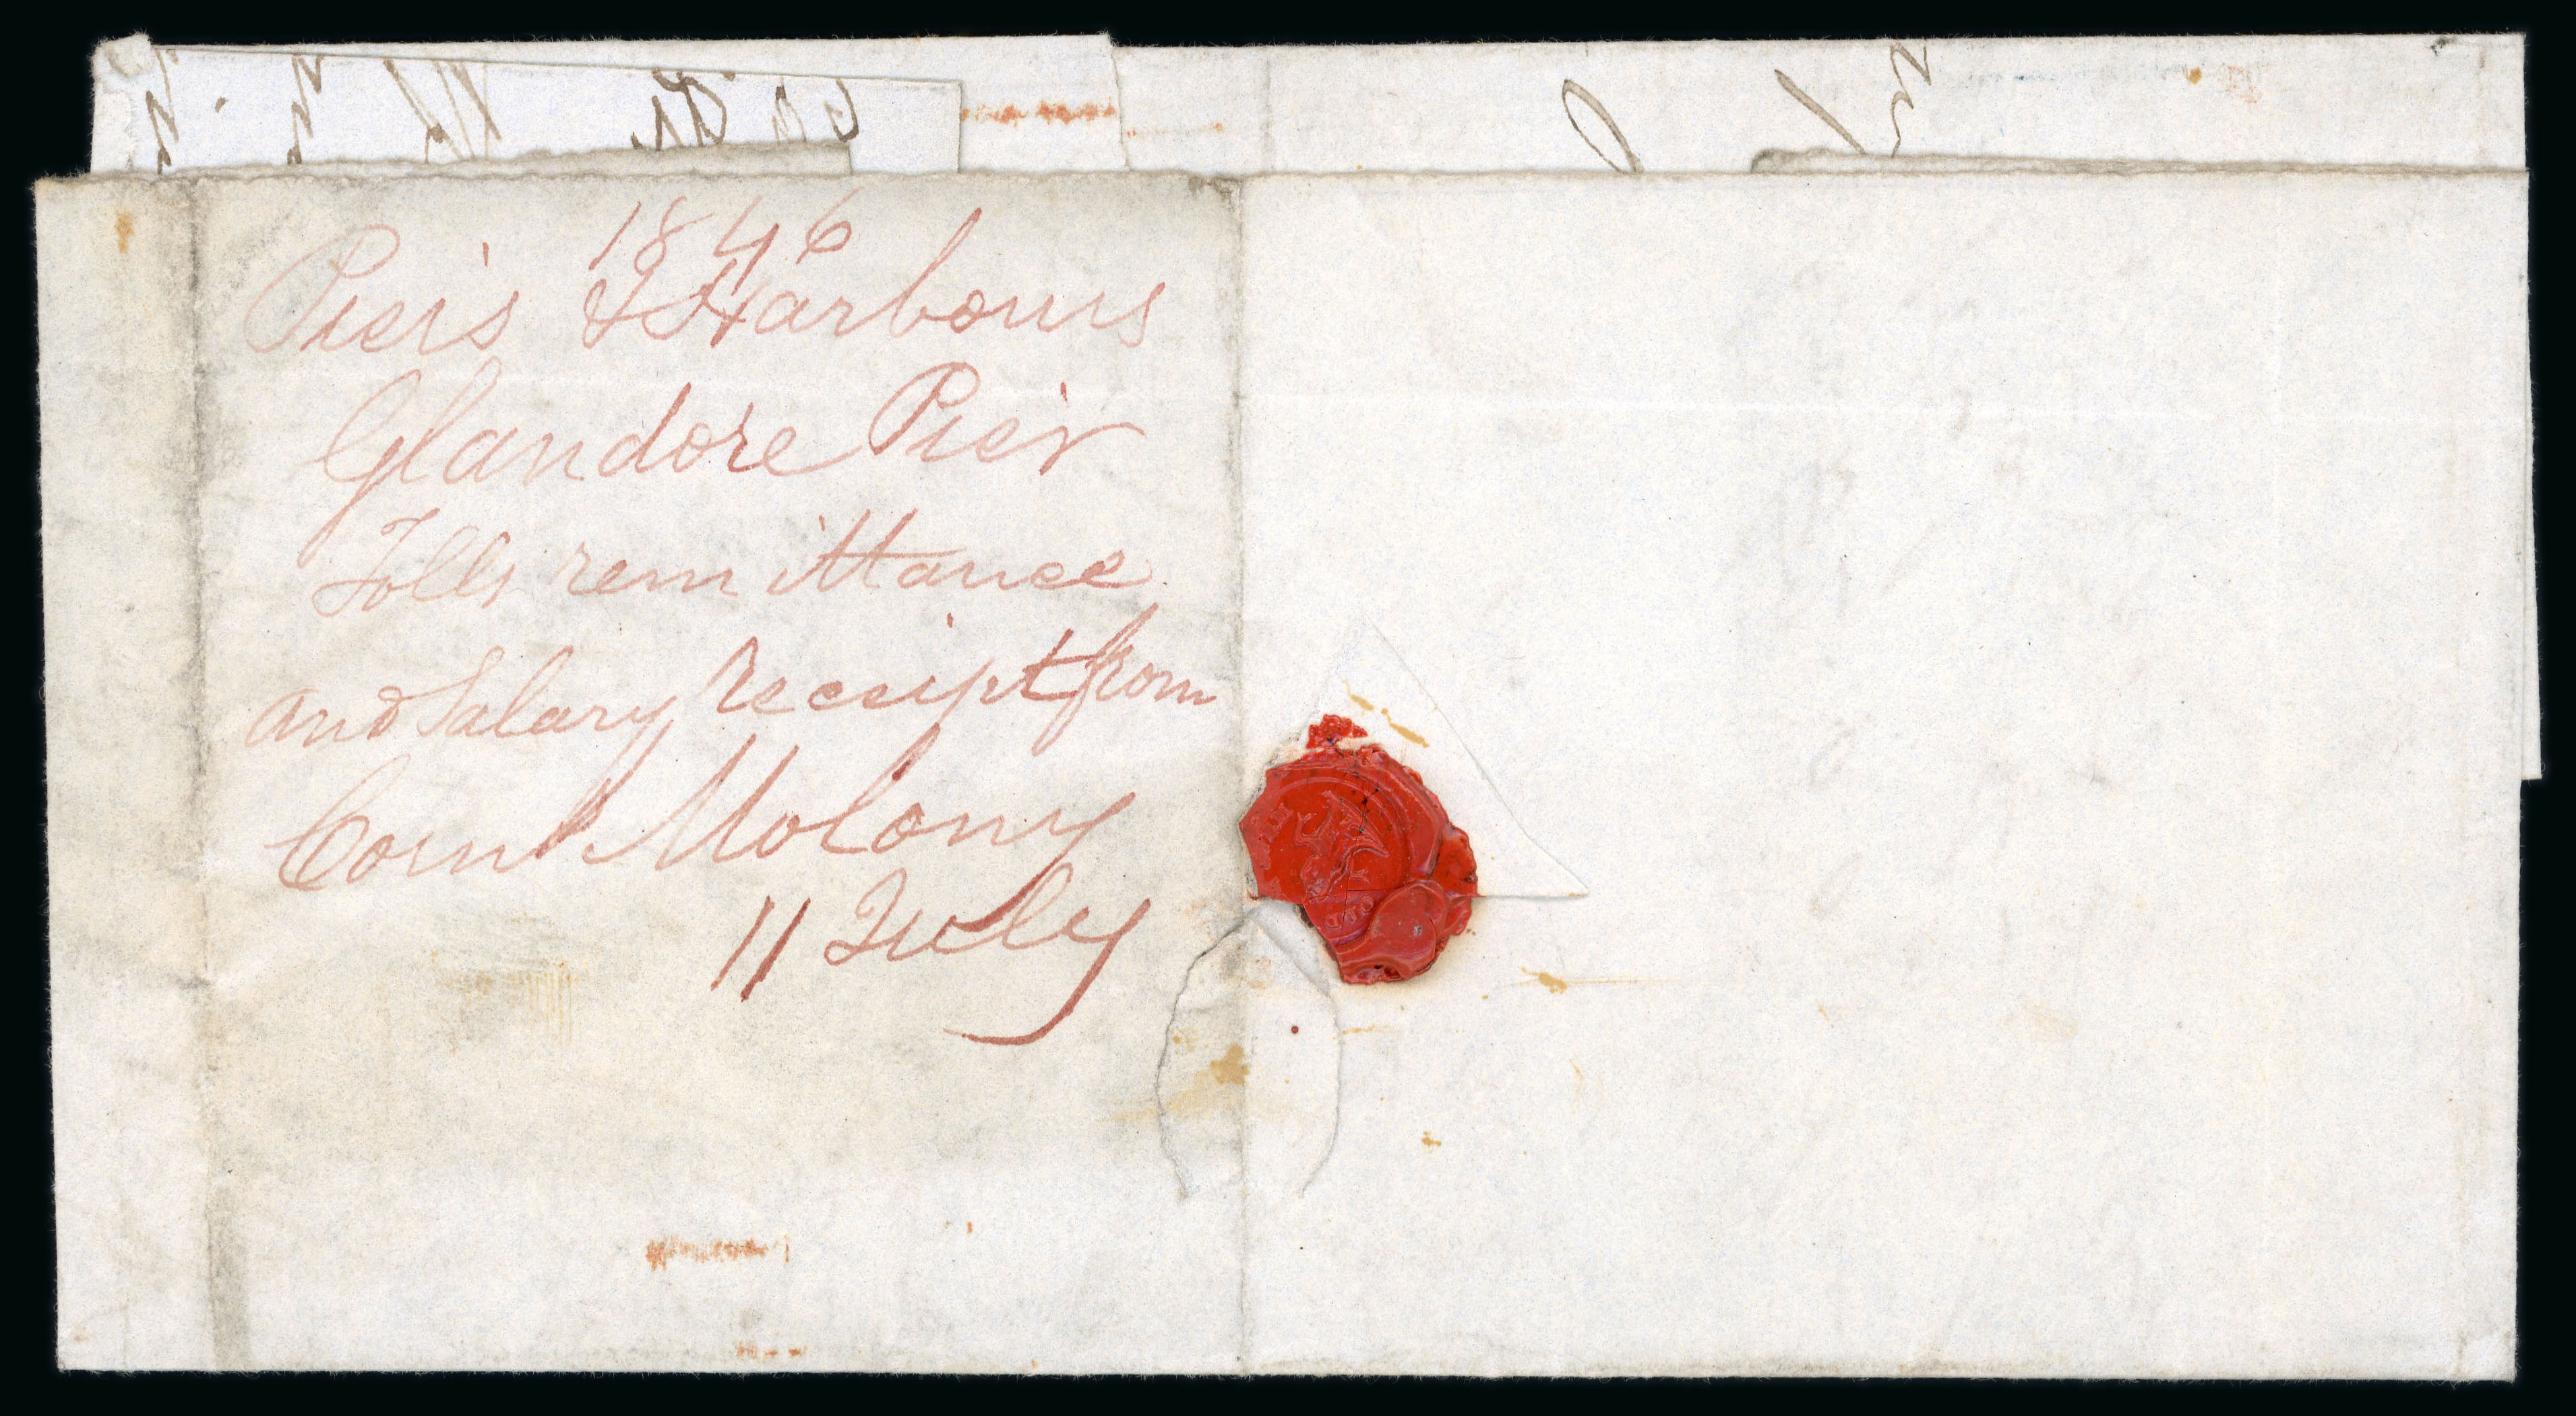 1846
Piers & Harbours
Glandore Pier
Tolls remittance
and Salary receipt from
Corn.l Molony
11 July